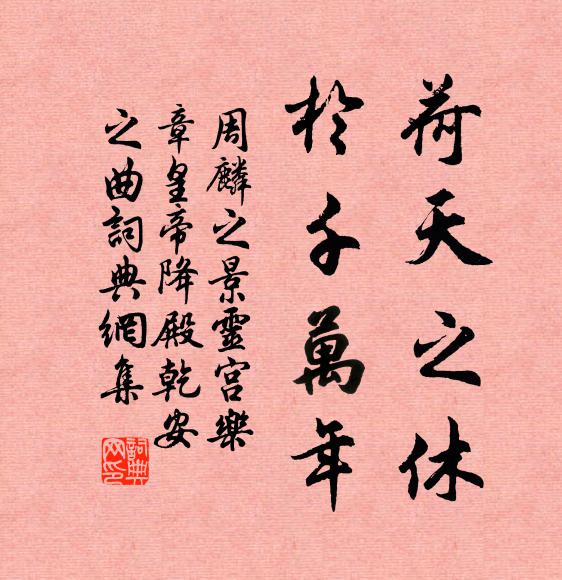 荷天之休
於千萬年
周麟之景靈宮樂
章皇帝降殿乾安
之曲詞典網集
詞典網印